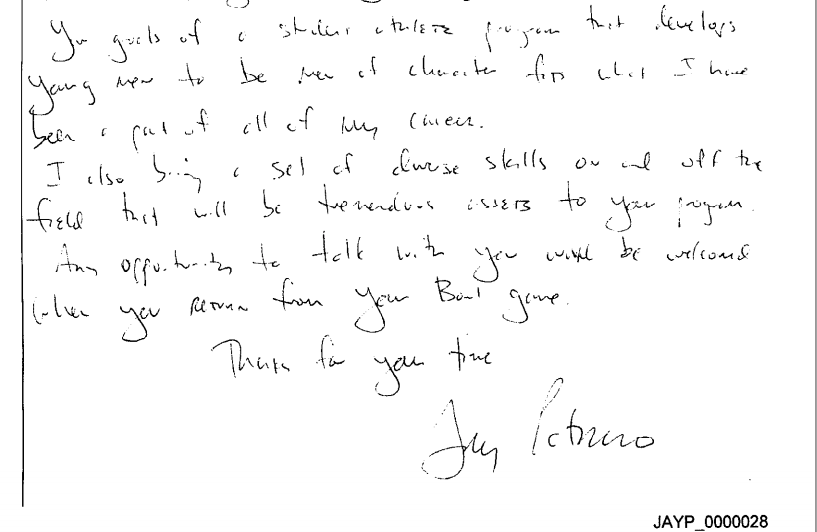 Your goals of a student athlete program that develops
young men to be men of character fits what I have
been a part of all of my career.
I also bring a set of diverse skills on and off the
field that will be tremendous assets to your program.
Any opportunity to talk with you would be welcomed
when you return from your Bowl game.
Thanks for your time
Jay Paterno
JAYP_0000028